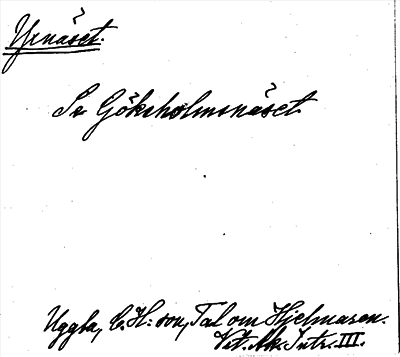 Yrnäset.
Se Göksholmsnäset.
Uggla, C. H:son, Tal om Hjelmaren.
Vit. Ak. Intr. III.